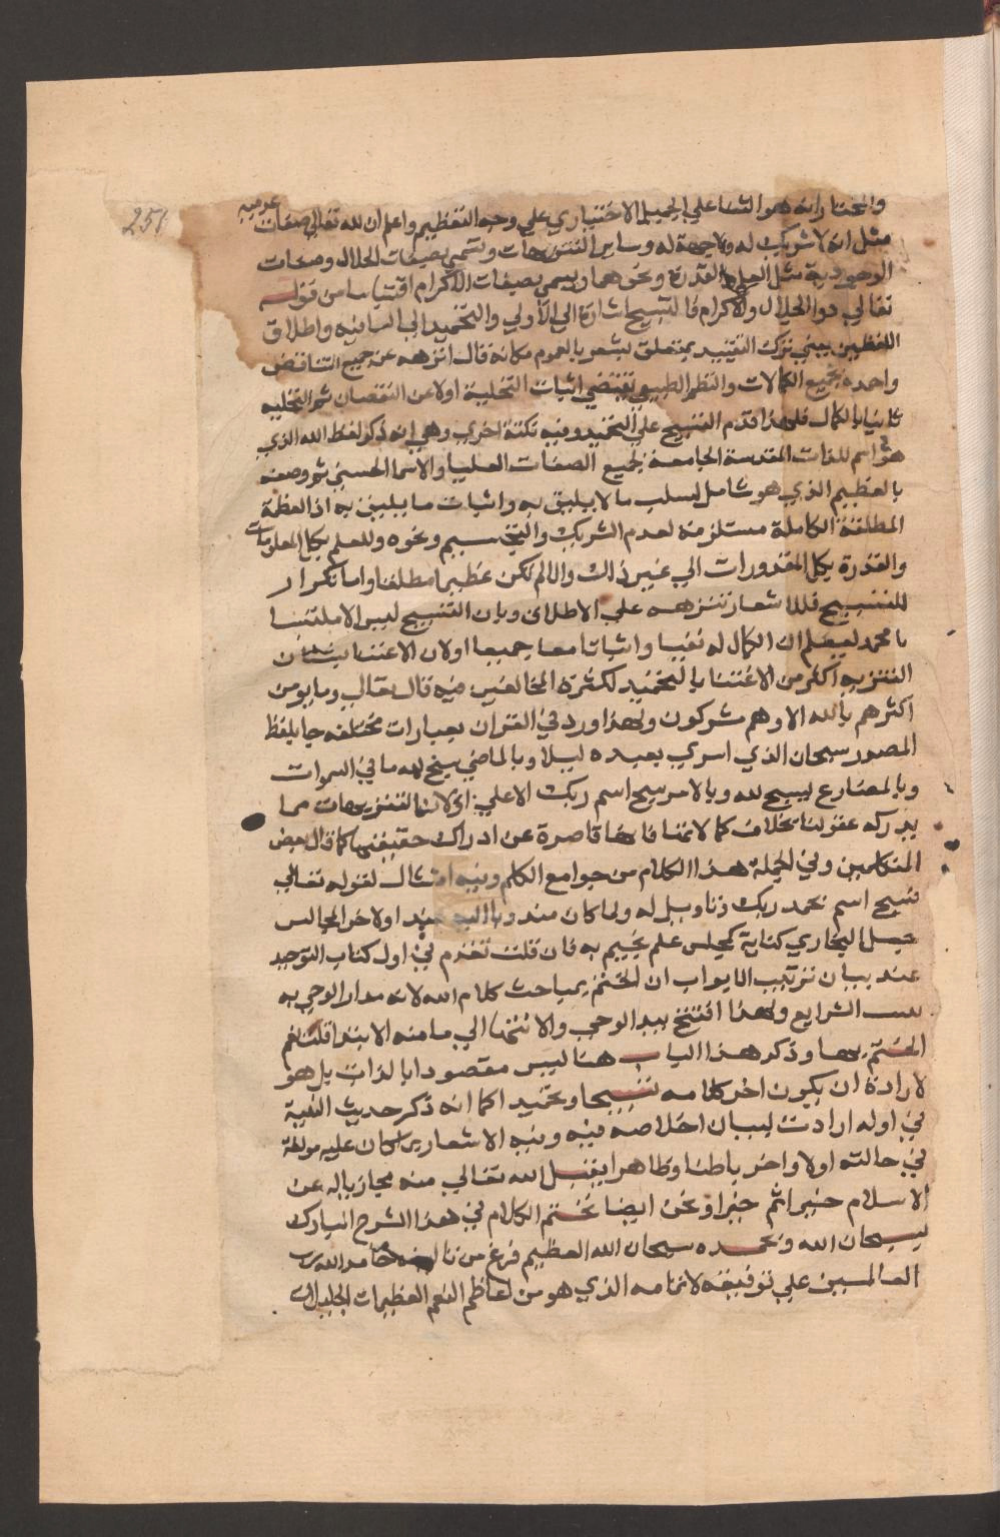 251
والمختار انه هو الثناء علي الجميل الاختياري علي وجه التعظيم واعلم ان لله تعالي صفات عدمية
مثل انه لا شريك له ولا جهة له وساير التنزيهات وتسمي بصفات الجلال وصفات
الوجودية مثل العلم والقدرة ونحوهما ويسمي بصفات الاكرام اقتباسا من قوله
تعالي ذوا الجلال والاكرام فالتسبيح اشارة الي الاولي والتحميد الي الثانيه واطلاق
اللفظين يعني ترك التقييد بمتعلق ليشعر بالعموم مكانه قال انزهه عن جميع النقايص
واحمده بجميع الكمالات والنظم الطبيعي تقتضي اثبات التخلية اولا عن النقصان ثم التحليه
ثانيا بالكمال فلهذا قدم التسبيح علي التحميد وفيه نكتة اخري وهي انه ذكر لفظ الله الذي
هو اسم للذات المقدسة الجامعة لجميع الصفات العليا والاسما الحسني ثم وصفه
بالعظيم الذي هو شامل لسلب ما لا يليق به واثبات ما يليق به اذ العظمة
المطلقة الكاملة مستلزمة لعدم الشريك والتجسيم ونحوه وللعلم بكل المعلومات
والقدرة بكل المقدورات الي غير ذلك والا لم تكن عظيما مطلقا واما تكرار
للتسبيح فللاشعار بتنزهه علي الاطلاق وبان التسبيح ليس الا ملتبسا
بالحمد ليعلم ان الكمال له نفيا واثباتا معا جميعا اولان الاعتناء بشان
التنزيه اكثر من الاعتناء بالتحميد لكثرة المخالفين فيه قال تعالي وما يومن
اكثرهم بالله الا وهم مشركون ولهذا ورد في القران بعبارات مختلفه جا بلفظ
المصدر سبحان الذي اسري بعبده ليلا وبالماضي سبح لله ما في السموات
وبالمضارع يسبح لله وبالامر سبح اسم ربك الاعلي اولان التنزيهات مما
يدركه عقولنا بخلاف كمالاتنا فانها قاصرة عن ادراك حقيقتها كما قال بعض
المتكلمين وفي الجملة هذا الكلام من جوامع الكلم وفيه امتثال لقوله تعالي
فسبح اسم بحمد ربك وتاويل له ولما كان مندوبا اليه اولاخر المجالس
جعل البخاري كتابه كمجلس علم يختم به فان قلت تقدم في اول كتاب التوحيد
عند بيان ترتيب الابواب ان الختم بمباحث كلام الله لانه مدار الوحي به
الشرايع ولهذا افتتح ببدا الوحي والانتها الي ما منه الابتدا قلت نعم
الختم بها وذكر هذا الباب هنا ليس مقصودا بالذات بل هو
لارادة ان يكون اخر كلامه تسبيحا وتحميدا كما انه ذكر حديث النية
في اوله ارادت لبيان اخلاصه فيه وفيه الاشعار بما كان عليه مولفه
في حالته اولا واخر باطنا وظاهرا يقبل الله تعالي منه مجازياله عن
الاسلام خيرا ثم خيرا ونحن ايضا نختم الكلام في هذا الشرح المبارك
بسبحان الله وبحمده سبحان الله العظيم فرغ من تاليفه حامدا لله رب
العالمين علي توفيقه لاتمامه الذي هو من لعاظم النعم العظيمات الجليل